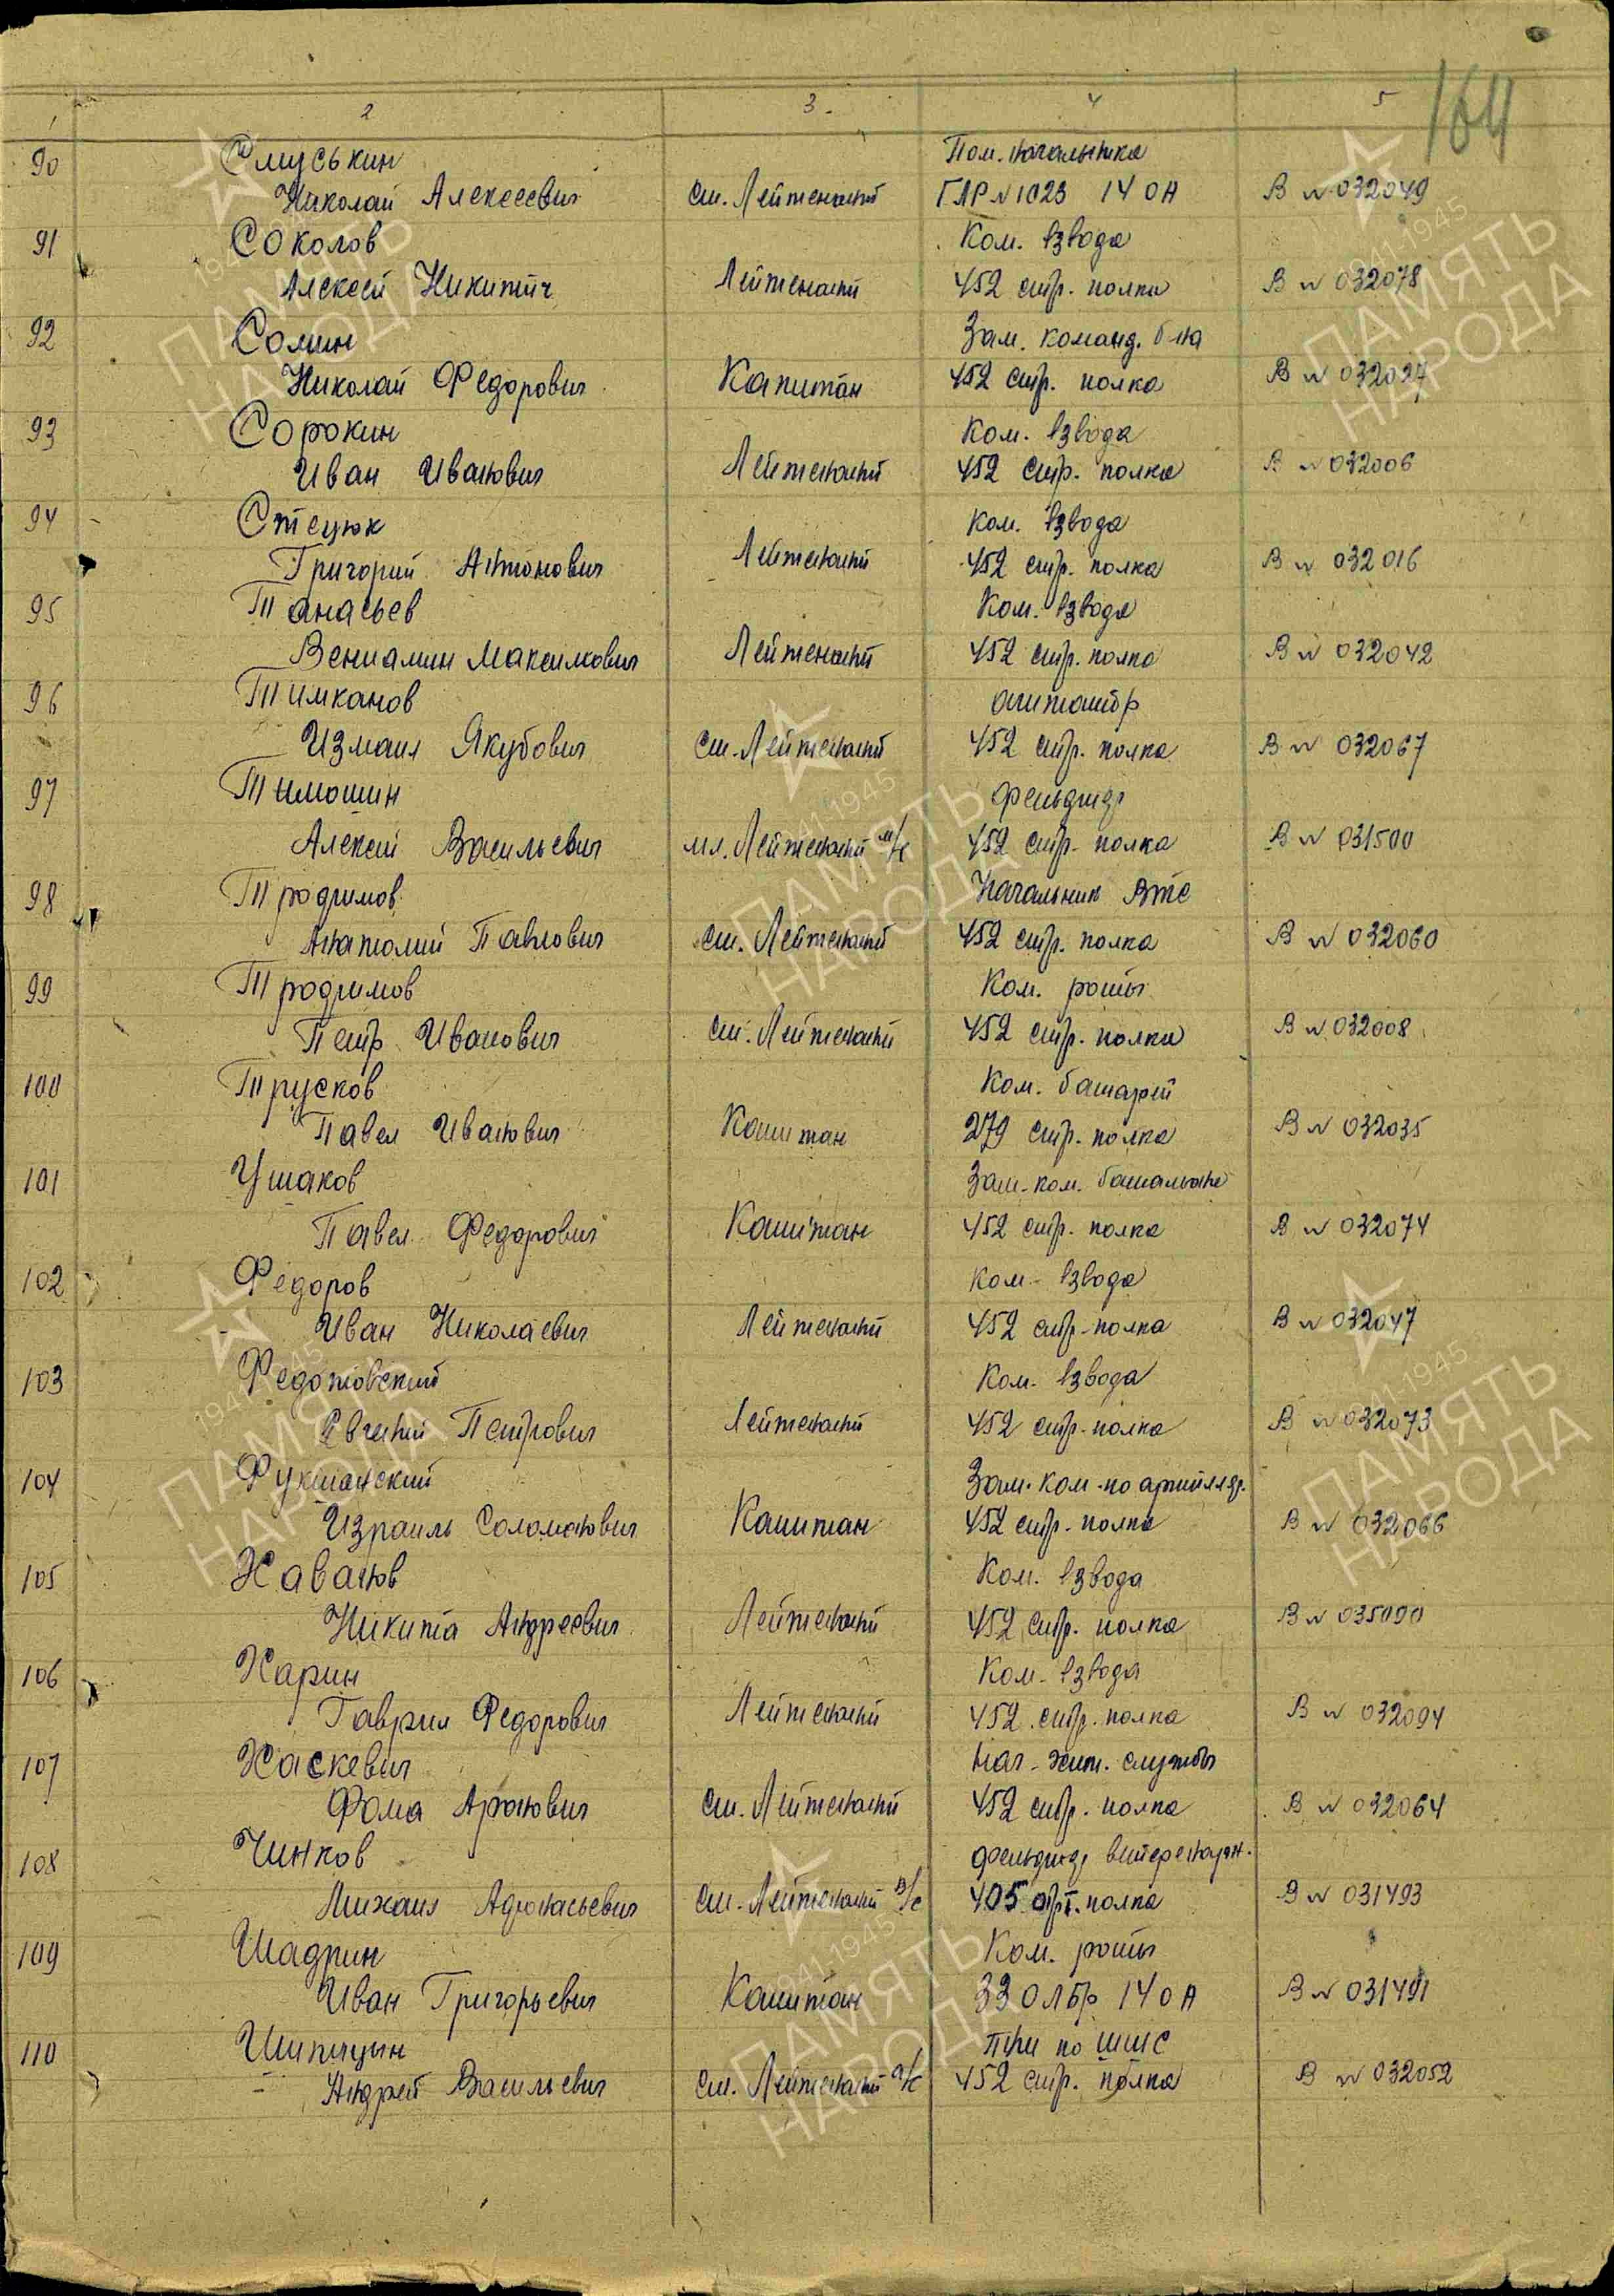 164
1 2 3 4 5
90 Смуськин Пом. начальника
Николай Алексеевич ст. Лейтенант ГЛР №1023 14 ОА В № 032049
91 Соколов Ком. взвода
Алексей Никитич Лейтенант 452 стр. полка В № 032078
92 Сомин Зам. команд. б-на
Николай Федорович Капитан 452 стр. полка В № 032027
93 Сорокин Ком. взвода
Иван Иванович Лейтенант 452 стр. полка В № 032006
94 Стецюк Ком. взвода
Григорий Антонович Лейтенант 452 стр. полка В № 032016
95 Танасьев Ком. взвода
Вениамин Максимович Лейтенант 452 стр. полка В № 032042
96 Тимканов агитатор
Измаил Якубович ст. Лейтенант 452 стр. полка В № 032067
97 Тимошин Фельдшер
Алексей Васильевич мл. Лейтенант м/с 452 стр. полка В № 031500
98 Тродимов Начальник ВТС
Анатолий Павлович ст. Лейтенант 452 стр. полка В № 032060
99 Тродимов Ком. роты
Петр Иванович ст. Лейтенант 452 стр. полка В № 032008
100 Трусков Ком. батареи
Павел Иванович Капитан 279 стр. полка В № 032035
101 Ушаков Зам. ком. батальона
Павел Федорович Капитан 452 стр. полка В № 032074
102 Федоров Ком. взвода
Иван Николаевич Лейтенант 452 стр. полка В № 032047
103 Федотовский Ком. взвода
Евгений Петрович Лейтенант 452 стр. полка В № 032073
104 Фукшанский Зам. ком. по артиллер.
Израиль Соломонович Капитан 452 стр. полка В № 032066
105 Хаванов Ком. взвода
Никита Андреевич Лейтенант 452 стр. полка В № 035090
106 Харин Ком. взвода
Гаврил Федорович Лейтенант 452 стр. полка В № 032094
107 Хаскевич Нач. хим. службы
Фома Аронович ст. Лейтенант 452 стр. полка В № 032064
108 Чинков фельдшер ветеренарн.
Михаил Афонасьевич ст. Лейтенант в/с 405 арт. полка В № 031493
109 Шадрин Ком. роты
Иван Григорьевич Капитан 33 ОЛБр 14 ОА В № 031491
110 Шипицын ПНШ по ШШС
Андрей Васильевич ст. Лейтенант а/с 452 стр. полка В № 032052
1941-1945
ПАМЯТЬ
НАРОДА
1941-1945
ПАМЯТЬ
НАРОДА
1941-1945
ПАМЯТЬ
НАРОДА
1941-1945
ПАМЯТЬ
НАРОДА
1941-1945
ПАМЯТЬ
НАРОДА
1941-1945
ПАМЯТЬ
НАРОДА